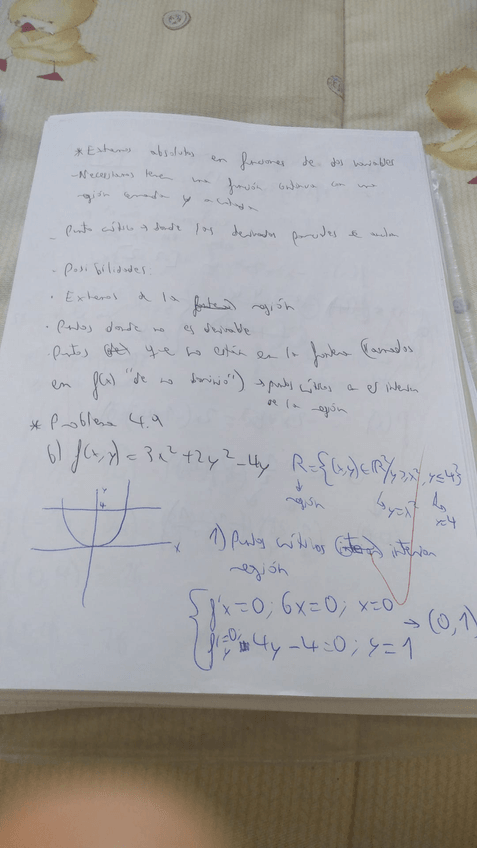 * Extremos absolutos en funciones de dos variables
- Necesitamos tener una función continua con una
región cerrada y acotada
- Punto crítico → donde las derivadas parciales se anulan
- Posibilidades:
· Extremos de la región
· Puntos donde no es derivable
· Puntos que no están en la frontera (llamados
en f(x) "de no dominio") → puntos críticos en el interior
de la región
* Problema 4.9
b) f(x,y) = 3x² + 2y² - 4y R = {(x,y) ∈ ℝ² / y ≥ x², y ≤ 4}
región ↳ y = x²
x = 4
y
4
x
1) Puntos críticos interior
región
{ f'x = 0; 6x = 0; x = 0
f'y = 0; 4y - 4 = 0; y = 1 → (0,1)